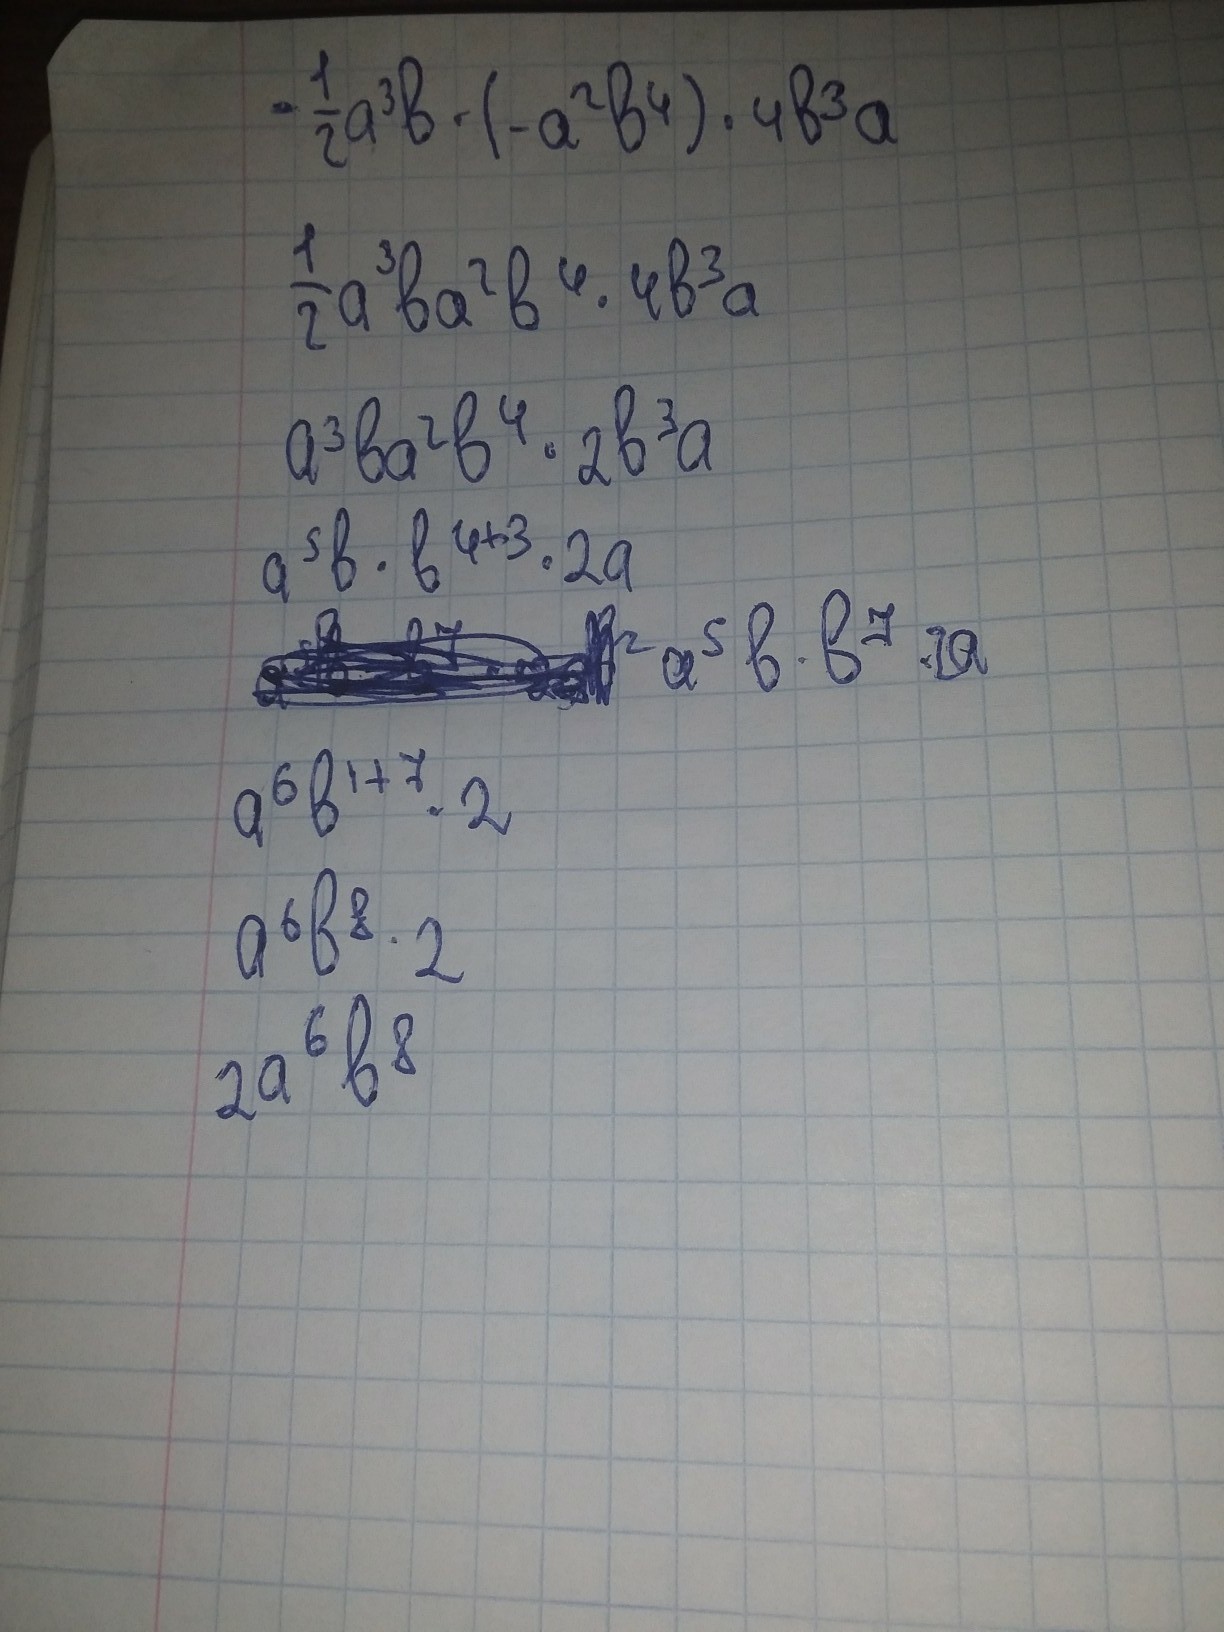 -1/2a³b · (-a²b⁴) · 4b³a
1/2a³ba²b⁴ · 4b³a
a³ba²b⁴ · 2b³a
a⁵b · b⁴⁺³ · 2a
= a⁵b · b⁷ · 2a
a⁶b¹⁺⁷ · 2
a⁶b⁸ · 2
2a⁶b⁸